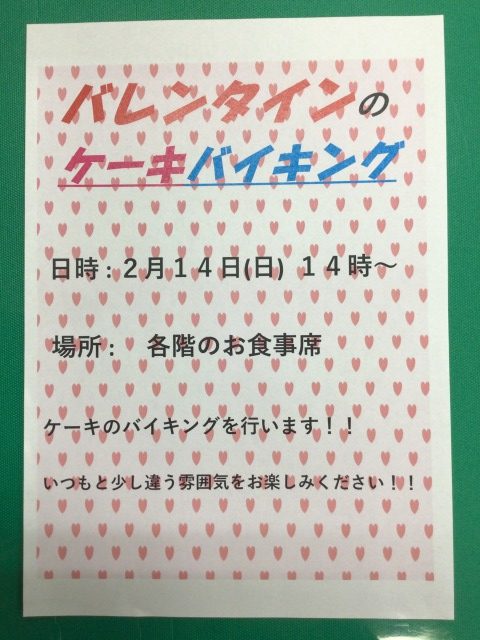 バレンタインの
ケーキバイキング
日時：２月１４日(日) １４時～
場所： 各階のお食事席
ケーキのバイキングを行います！！
いつもと少し違う雰囲気をお楽しみください！！